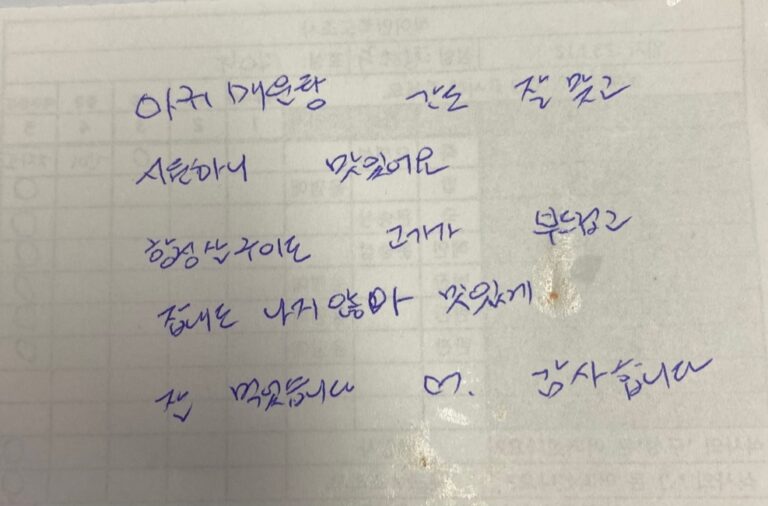 아귀매운탕 간도 잘 맞고
시원하니 맛있어요
항정살구이도 고기가 부드럽고
잡내도 나지않아 맛있게
잘 먹었습니다 감사합니다